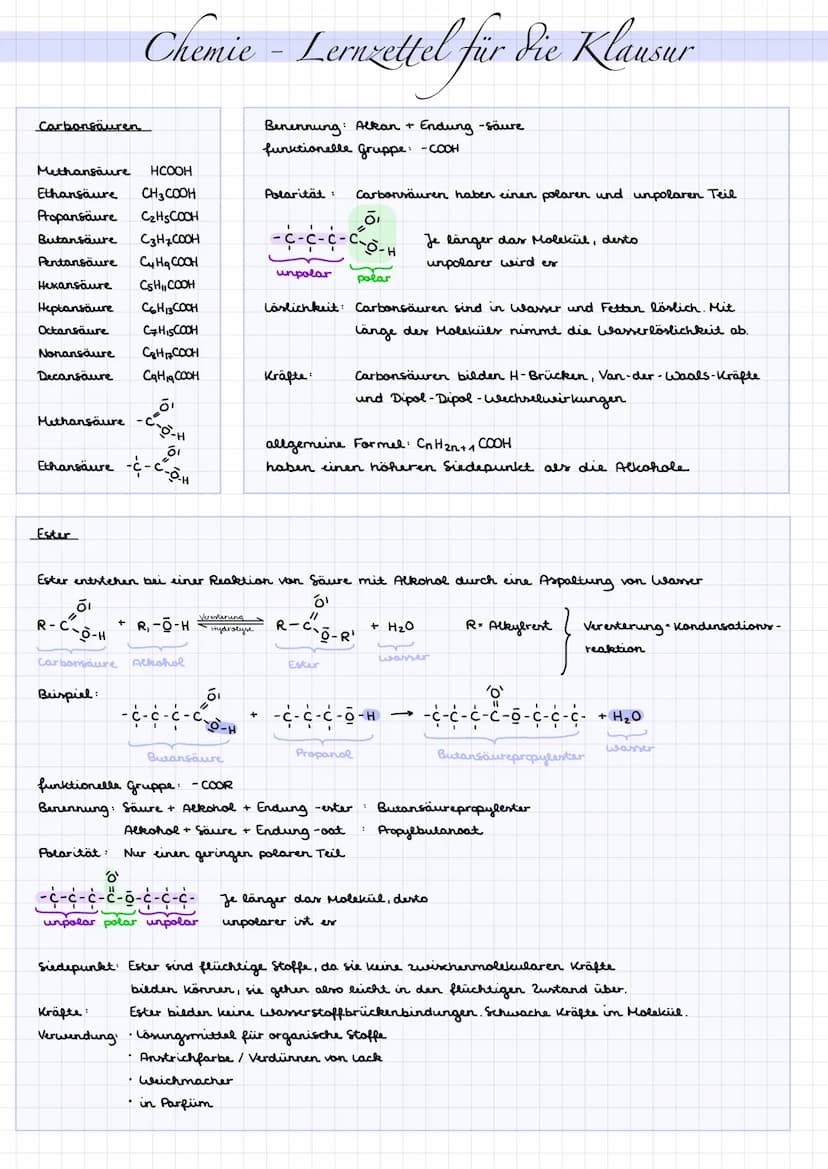 Chemie - Lernzettel für die Klausur
Carbonsäuren
Methansäure HCOOH
Ethansäure CH₃COOH
Propansäure C₂H₅COOH
Butansäure C₃H₇COOH
Pentansäure C₄H₉COOH
Hexansäure C₅H₁₁COOH
Heptansäure C₆H₁₃COOH
Octansäure C₇H₁₅COOH
Nonansäure C₈H₁₇COOH
Decansäure C₉H₁₉COOH
Methansäure -C=O O-H
Ethansäure -C-C=O O-H
Benennung: Alkan + Endung -säure
funktionelle Gruppe: -COOH
Polarität: Carbonsäuren haben einen polaren und unpolaren Teil
-C-C-C-C=O O-H
Je länger das Molekül, desto
unpolarer wird es
unpolar polar
Löslichkeit: Carbonsäuren sind in Wasser und Fetten löslich. Mit
Länge des Moleküls nimmt die Wasserlöslichkeit ab.
Kräfte: Carbonsäuren bilden H-Brücken, Van-der-Waals-Kräfte
und Dipol-Dipol-Wechselwirkungen
allgemeine Formel: CnH2n+1COOH
haben einen höheren Siedepunkt als die Alkohole
Ester
Ester entstehen bei einer Reaktion von Säure mit Alkohol durch eine Aspaltung von Wasser
R-C=O O-H + R₁-O-H Veresterung Hydrolyse R-C=O O-R' + H₂O R= Alkylrest } Veresterung = Kondensations-
reaktion
Carbonsäure Alkohol Ester Wasser
Beispiel:
-C-C-C-C=O O-H + -C-C-C-O-H → -C-C-C-C=O-O-C-C-C- + H₂O
Butansäure Propanol Butansäurepropylester Wasser
funktionelle Gruppe: -COOR
Benennung: Säure + Alkohol + Endung -ester : Butansäurepropylester
Alkohol + Säure + Endung -oat : Propylbutanoat
Polarität: Nur einen geringen polaren Teil
-C-C-C-C=O-O-C-C-C- Je länger das Molekül, desto
unpolar polar unpolar unpolarer ist es
Siedepunkt: Ester sind flüchtige Stoffe, da sie keine zwischenmolekularen Kräfte
bilden können, sie gehen also leicht in den flüchtigen Zustand über.
Kräfte: Ester bilden keine Wasserstoffbrückenbindungen. Schwache Kräfte im Molekül.
Verwendung: · Lösungsmittel für organische Stoffe
· Anstrichfarbe / Verdünnen von Lack
· Weichmacher
· in Parfüm